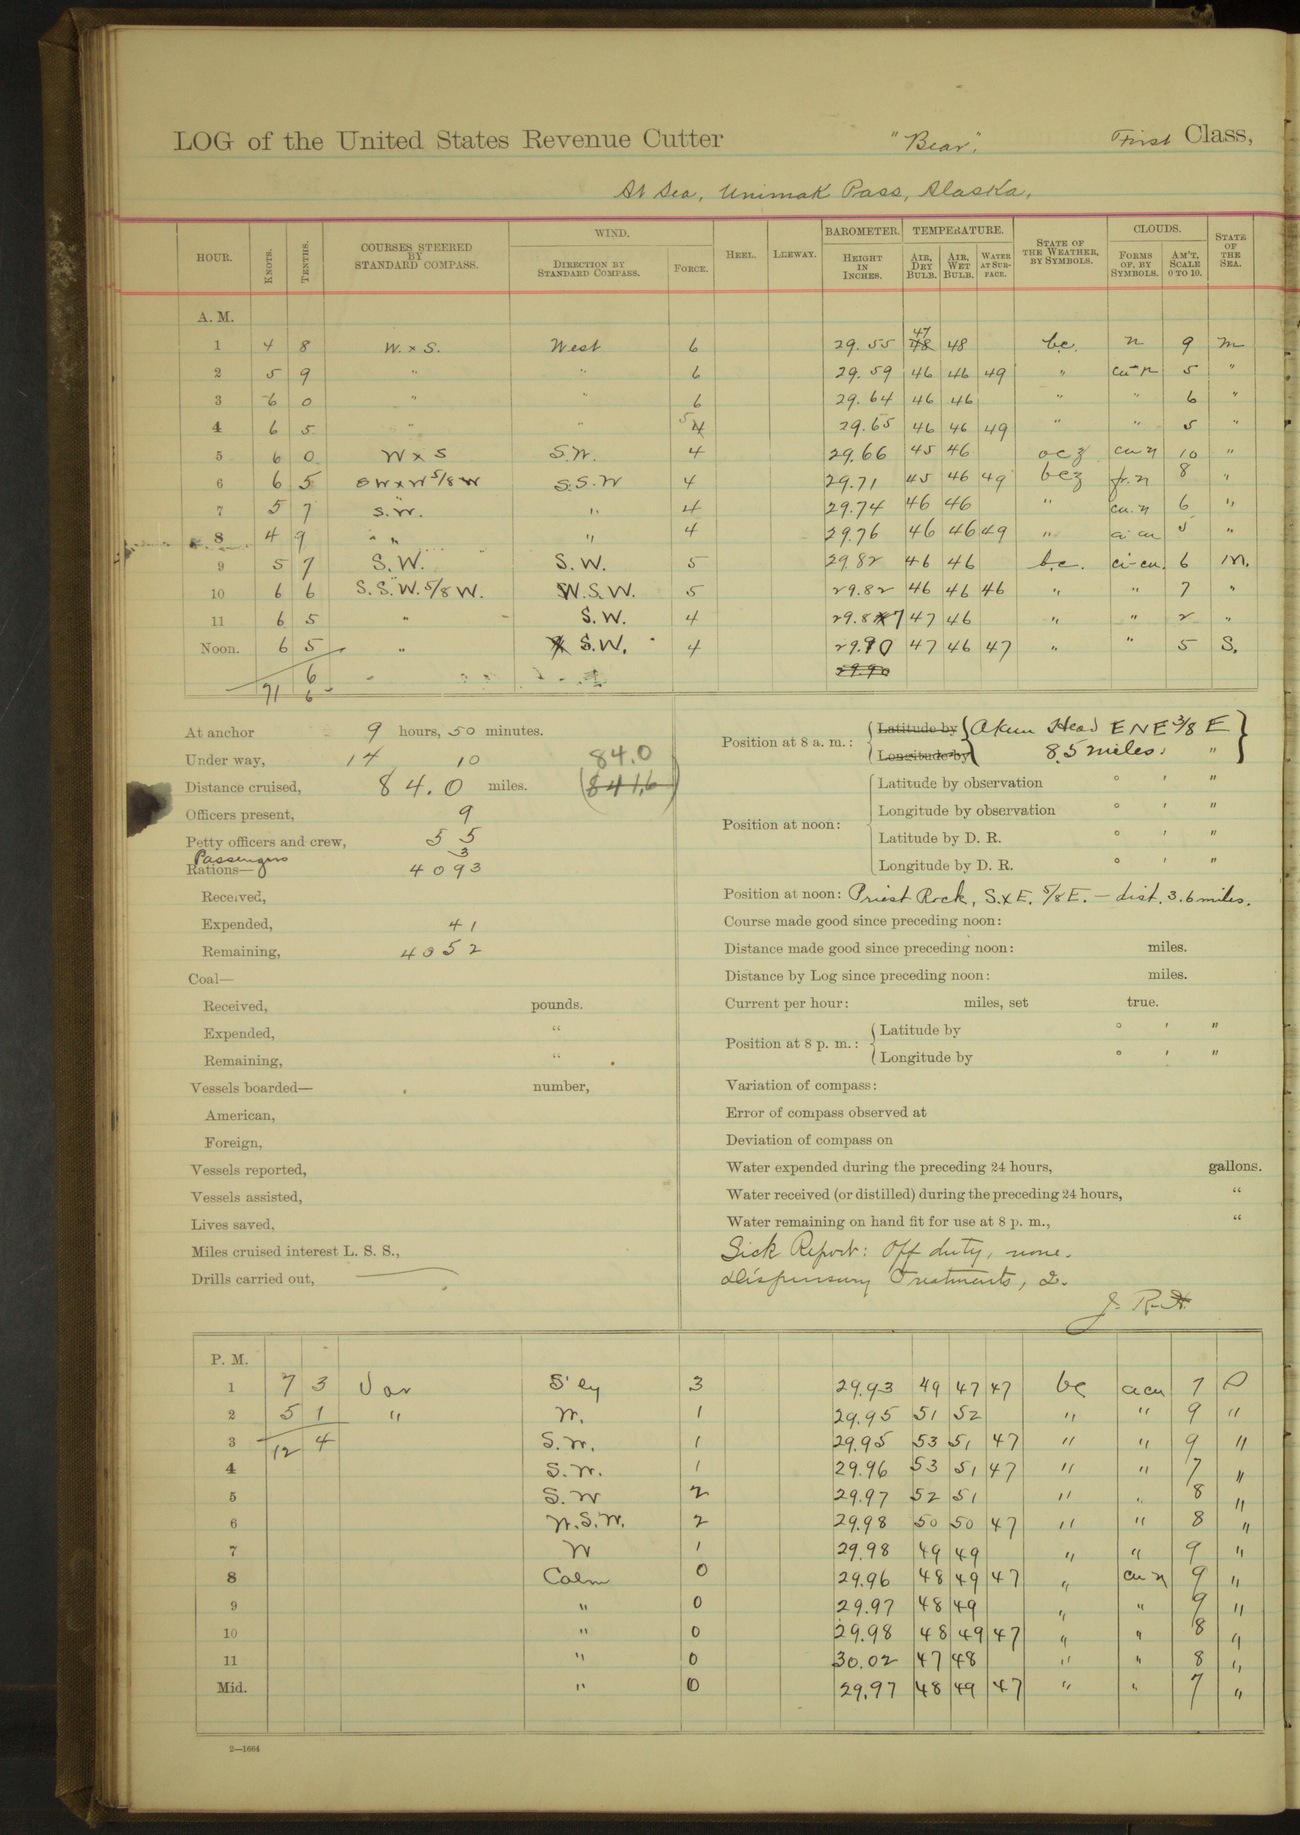 LOG of the United States Revenue Cutter "Bear". First Class,
At Sea, Unimak Pass, Alaska,
HOUR. KNOTS. TENTHS. COURSES STEERED BY STANDARD COMPASS. WIND. DIRECTION BY STANDARD COMPASS. FORCE. HEEL. LEEWAY. BAROMETER. HEIGHT IN INCHES. TEMPERATURE. AIR, DRY BULB. AIR, WET BULB. WATER AT SURFACE. STATE OF THE WEATHER, BY SYMBOLS. CLOUDS. FORMS OF, BY SYMBOLS. AM'T, SCALE 0 TO 10. STATE OF THE SEA.
A. M.
1 4 8 W. x S. West 6 29.55 47 48 48 b.c. n 9 m
2 5 9 " " 6 29.59 46 46 49 " cu-n 5 "
3 6 0 " " 6 29.64 46 46 " " 6 "
4 6 5 " " 5 4 29.65 46 46 49 " " 5 "
5 6 0 W x S S.W. 4 29.66 45 46 ocz cu n 10 "
6 6 5 S W x W 5/8 W S.S.W 4 29.71 45 46 49 bcz fr. n 8 "
7 5 7 S.W. " 4 29.74 46 46 " cu. n 6 "
8 4 9 " " " 4 29.76 46 46 49 " ci cu 5 "
9 5 7 S.W. S.W. 5 29.82 46 46 b.c. ci-cu. 6 m.
10 6 6 S.S.W. 5/8 W. W.S.W. 5 29.82 46 46 46 " " 7 "
11 6 5 " S.W. 4 29.87 47 46 " " 2 "
Noon. 6 5 " S.W. 4 29.90 47 46 47 " " 5 S.
71 6 6 29.90
At anchor 9 hours, 50 minutes.
Under way, 14 10
84.0
Distance cruised, 84.0 miles. (841.6)
Officers present, 9
Petty officers and crew, 55
Passengers 3
Rations— 4093
Received,
Expended, 41
Remaining, 4052
Coal—
Received, pounds.
Expended, "
Remaining, "
Vessels boarded— number,
American,
Foreign,
Vessels reported,
Vessels assisted,
Lives saved,
Miles cruised interest L. S. S.,
Drills carried out,
Position at 8 a. m.: Latitude by Akun Head ENE 3/8 E
Longitude by 8.5 miles. "
Position at noon: Latitude by observation ° ' "
Longitude by observation ° ' "
Latitude by D. R. ° ' "
Longitude by D. R. ° ' "
Position at noon: Priest Rock, S.x E. 5/8 E. — dist. 3.6 miles.
Course made good since preceding noon:
Distance made good since preceding noon: miles.
Distance by Log since preceding noon: miles.
Current per hour: miles, set true.
Position at 8 p. m.: Latitude by ° ' "
Longitude by ° ' "
Variation of compass:
Error of compass observed at
Deviation of compass on
Water expended during the preceding 24 hours, gallons.
Water received (or distilled) during the preceding 24 hours, "
Water remaining on hand fit for use at 8 p. m., "
Sick Report: Off duty, none.
Dispensary Treatments, 2.
P. M.
1 7 3 Var S'ly 3 29.93 49 47 47 bc a cu 7 S
2 5 1 " W. 1 29.95 51 52 " " 9 "
3 12 4 S.W. 1 29.95 53 51 47 " " 9 "
4 S.W. 1 29.96 53 51 47 " " 7 "
5 S.W 2 29.97 52 51 " " 8 "
6 W.S.W. 2 29.98 50 50 47 " " 8 "
7 W 1 29.98 49 49 " " 9 "
8 Calm 0 29.96 48 49 47 " cu n 9 "
9 " 0 29.97 48 49 " " 9 "
10 " 0 29.98 48 49 47 " " 8 "
11 " 0 30.02 47 48 " " 8 "
Mid. " 0 29.97 48 49 47 " " 7 "
2—1664